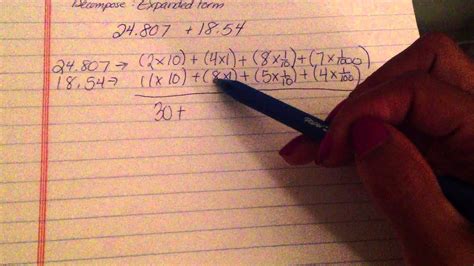 Decompose: Expanded form
24.807 + 18.54
24.807 → (2×10) + (4×1) + (8×1/10) + (7×1/1000)
18.54 → (1×10) + (8×1) + (5×1/10) + (4×1/100)
30 +